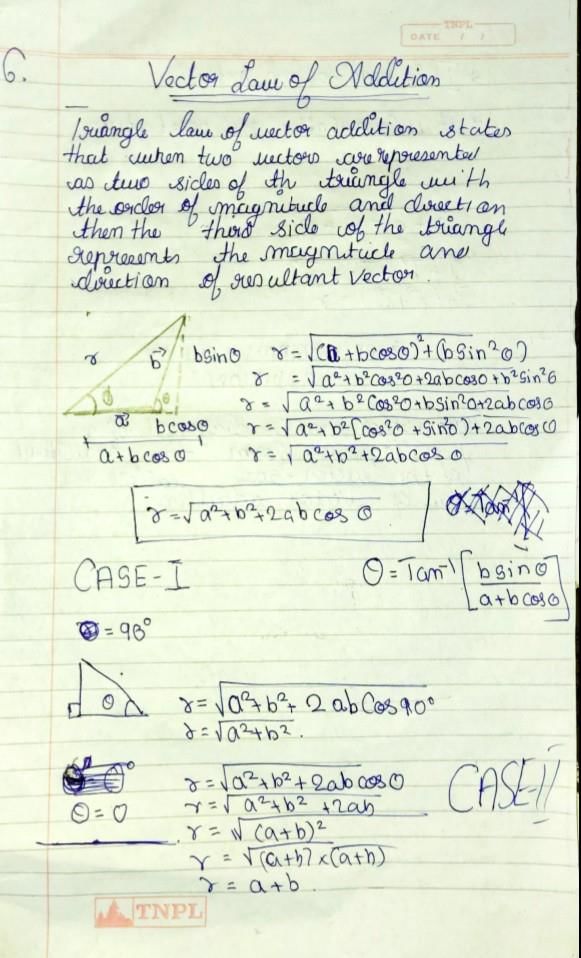 TNPL
DATE / /
6.
Vector Law of Addition
Triangle law of vector addition states
that when two vectors are represented
as two sides of th triangle with
the order of magnitude and direction
then the third side of the triangle
represents the magnitude and
direction of resultant vector.
r b⃗ bsinθ
θ
a⃗ bcosθ
a+bcosθ
r=√(a+bcosθ)²+(bsin²θ)
r =√a²+b²cos²θ+2abcosθ+b²sin²θ
r=√a²+b²cos²θ+bsin²θ+2abcosθ
r=√a²+b²[cos²θ+sin²θ)+2abcosθ
r=√a²+b²+2abcos θ
r=√a²+b²+2abcos θ
CASE-I
θ=Tan⁻¹[bsinθ/a+bcosθ]
=90°
θ
r=√a²+b²+2abCos90°
r=√a²+b².
CASE-II
θ=0
r=√a²+b²+2abcosθ
r=√a²+b²+2ab
r=√(a+b)²
r=√(a+b)×(a+b)
r=a+b.
TNPL